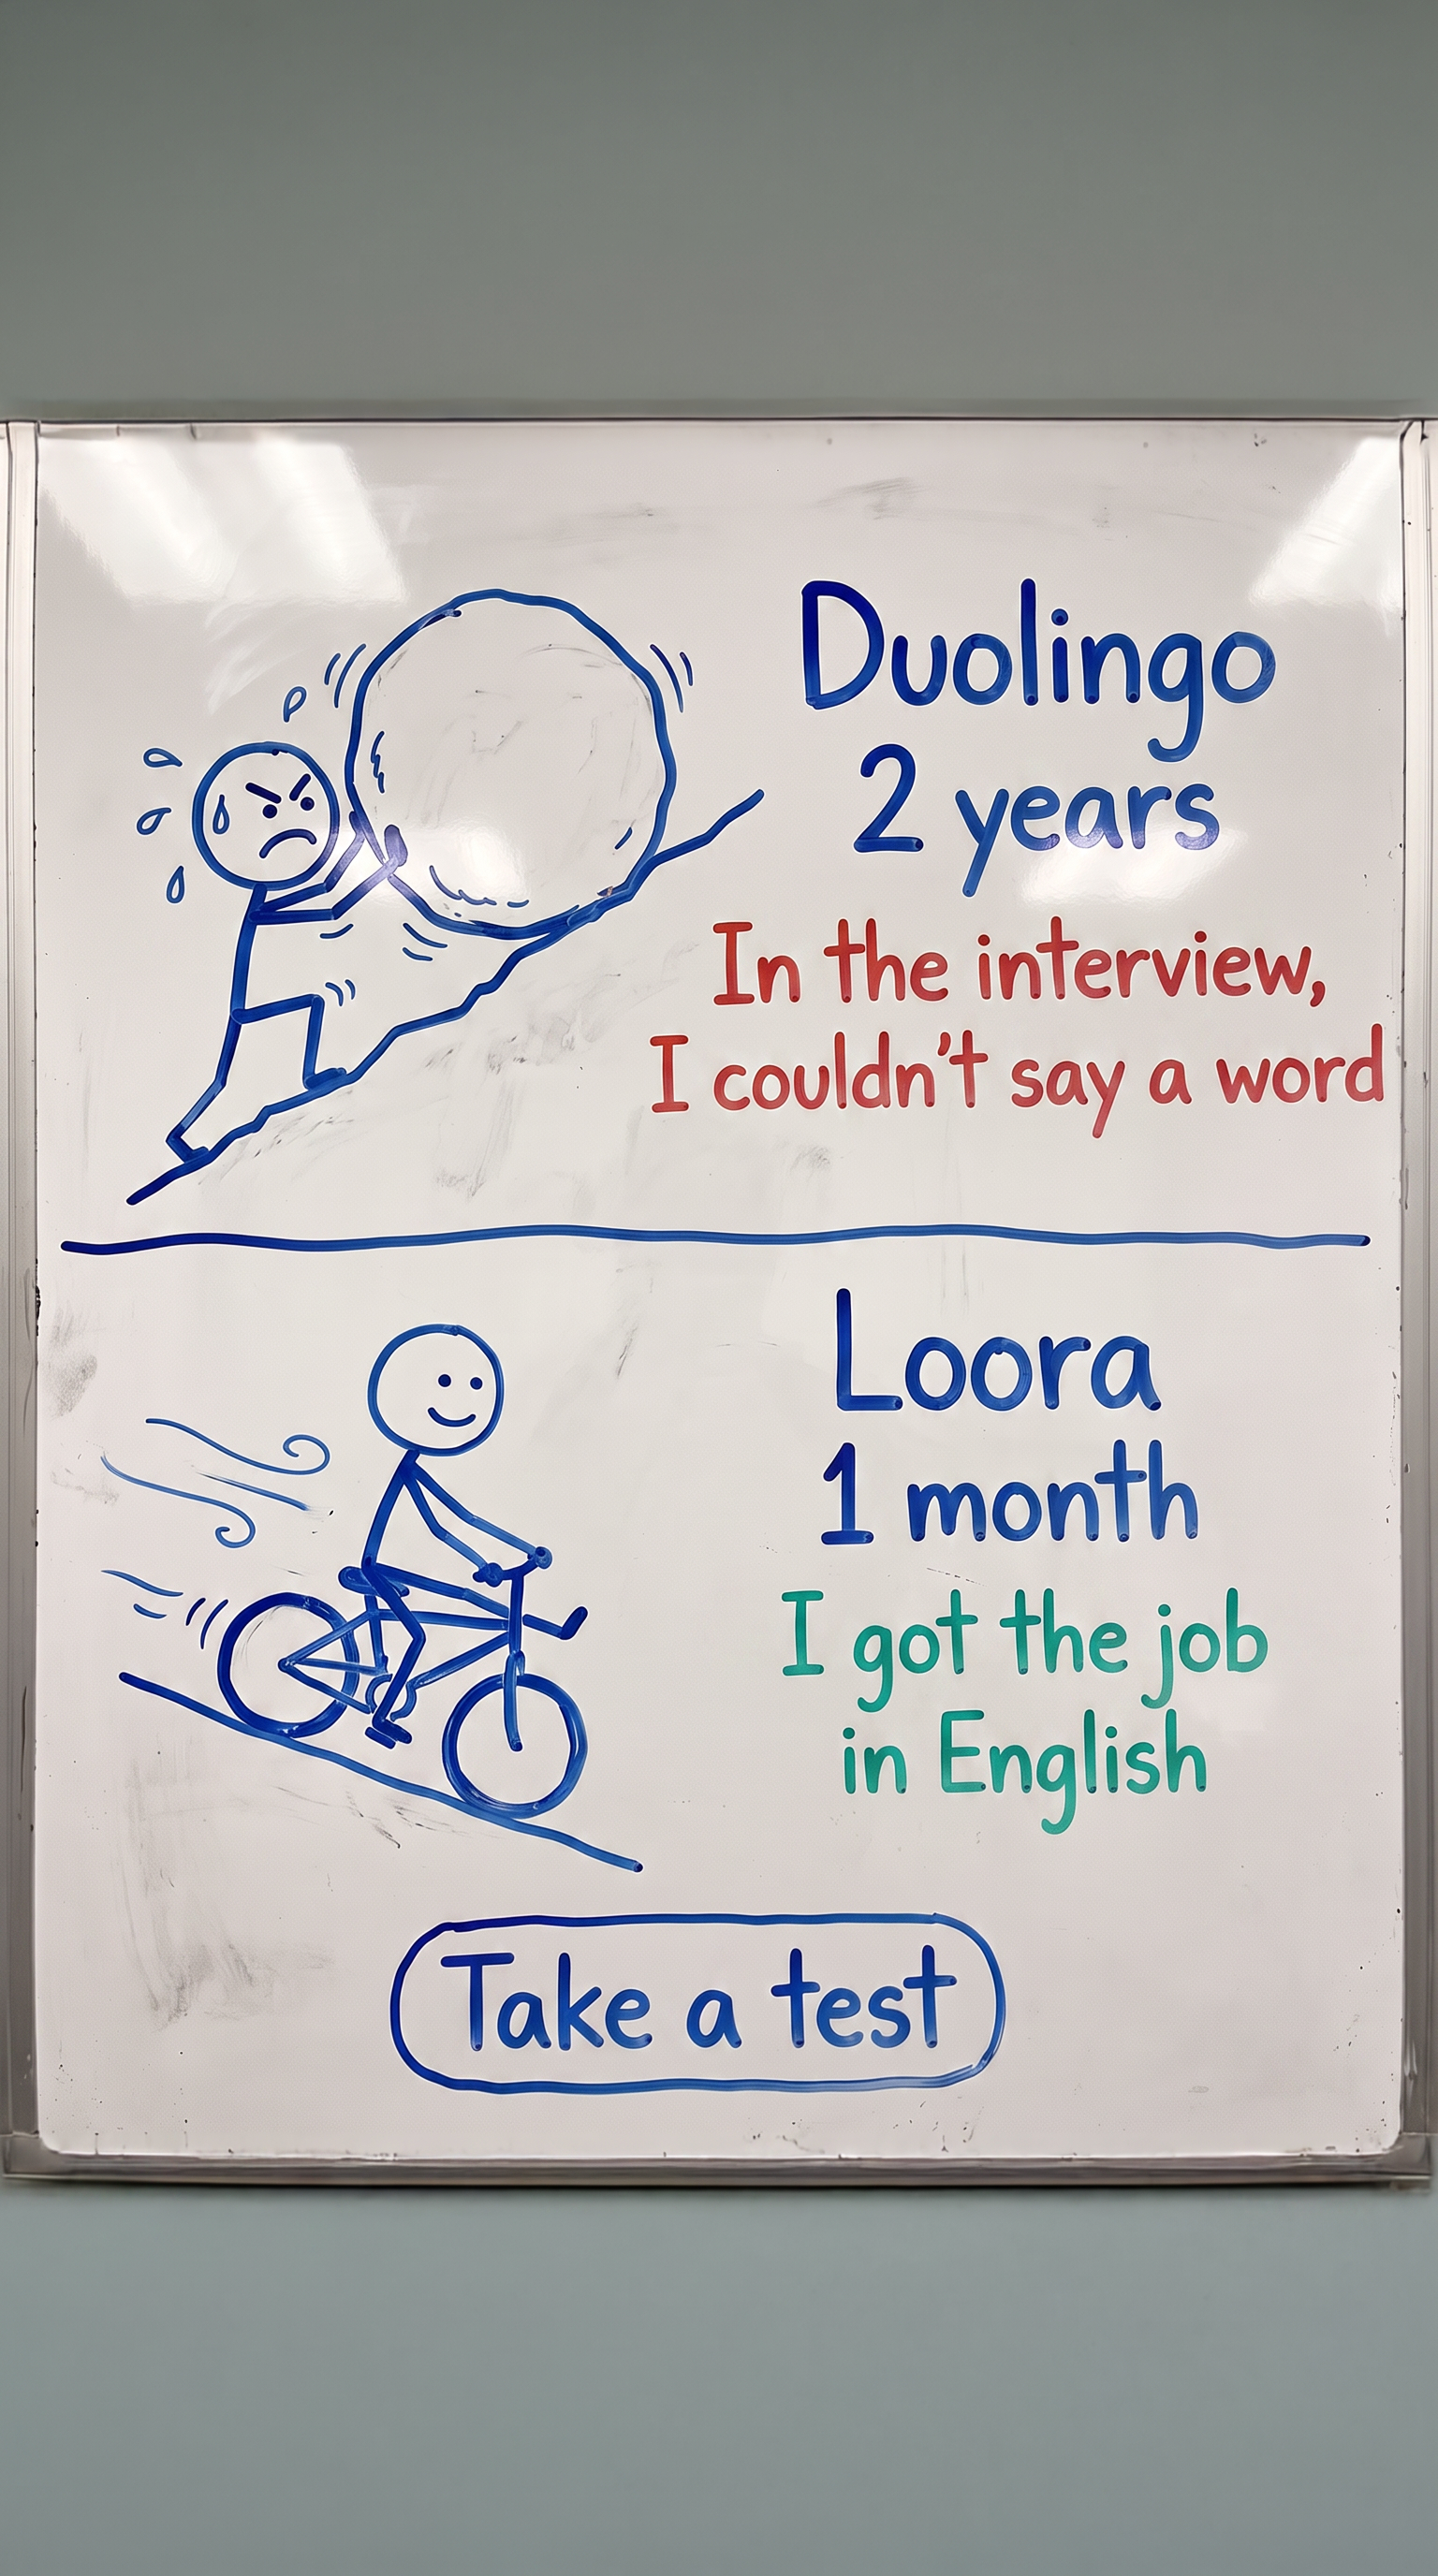 Duolingo
2 years
In the interview,
I couldn't say a word
Loora
1 month
I got the job
in English
Take a test